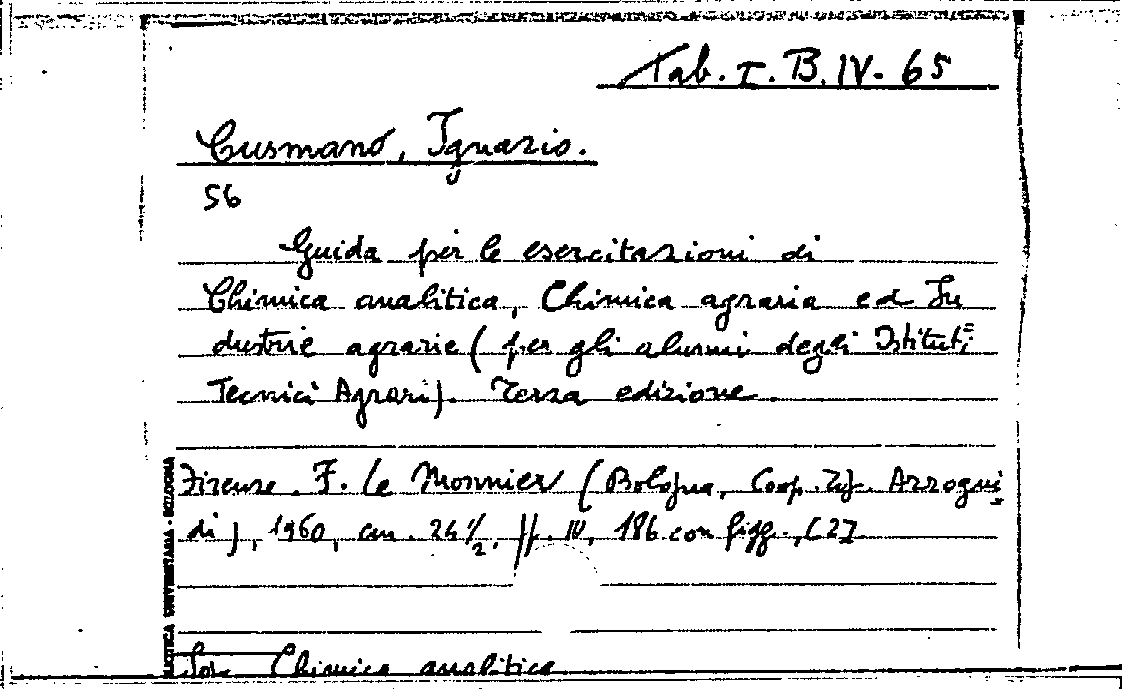 Tab. I. B. IV. 65
Cusmano, Ignazio.
56
Guida per le esercitazioni di
Chimica analitica, Chimica agraria ed In
dustrie agrarie (per gli alunni degli Istituti
Tecnici Agrari). Terza edizione.
Firenze. F. Le Monnier (Bologna, Coop. Tip. Azzogui
di), 1960, cm. 24 1/2, pp. IV, 186 con figg., [2].
UNIVERSITARIA - BOLOGNA
Chimica analitica